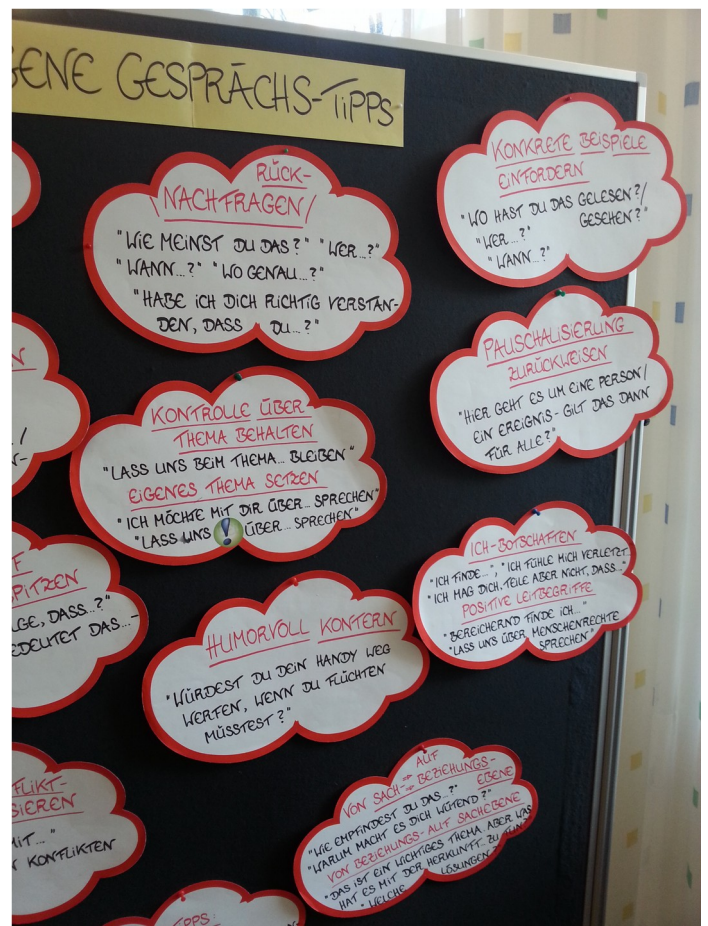 GENE GESPRÄCHS-TIPPS
RÜCK-
NACHFRAGEN/
"WIE MEINST DU DAS?" "WER...?"
"WANN...?" "WO GENAU...?"
"HABE ICH DICH RICHTIG VERSTAN-
DEN, DASS DU...?"
KONKRETE BEISPIELE
EINFORDERN
"WO HAST DU DAS GELESEN?/
GESEHEN?"
"WER...?"
"WANN...?"
PAUSCHALISIERUNG
ZURÜCKWEISEN
"HIER GEHT ES UM EINE PERSON/
EIN EREIGNIS - GILT DAS DANN
FÜR ALLE?"
KONTROLLE ÜBER-
THEMA BEHALTEN
"LASS UNS BEIM THEMA... BLEIBEN"
EIGENES THEMA SETZEN
"ICH MÖCHTE MIT DIR ÜBER... SPRECHEN"
"LASS UNS ! ÜBER... SPRECHEN"
ICH-BOTSCHAFTEN
"ICH FINDE...", "ICH FÜHLE MICH VERLETZT..
"ICH MAG DICH, TEILE ABER NICHT, DASS..."
POSITIVE LEITBEGRIFFE
"BEREICHERND FINDE ICH..."
"LASS UNS ÜBER MENSCHENRECHTE
SPRECHEN"
F
SPITZEN
LGE, DASS...?"
EDEUTET DAS...-
HUMORVOLL KONTERN
"WÜRDEST DU DEIN HANDY WEG
WERFEN, WENN DU FLÜCHTEN
MÜSSTEST?"
FLIKT-
SIEREN
MIT..."
KONFLIKTEN
AUF
VON SACH- → BEZIEHUNGS-
EBENE
"WIE EMPFINDEST DU DAS...?"
"WARUM MACHT ES DICH WÜTEND?"
VON BEZIEHUNGS- AUF SACHEBENE
"DAS IST EIN WICHTIGES THEMA. ABER WAS
HAT ES MIT DER HERKUNFT... ZU TUN?"
"WELCHE LÖSUNGEN
TIPPS: